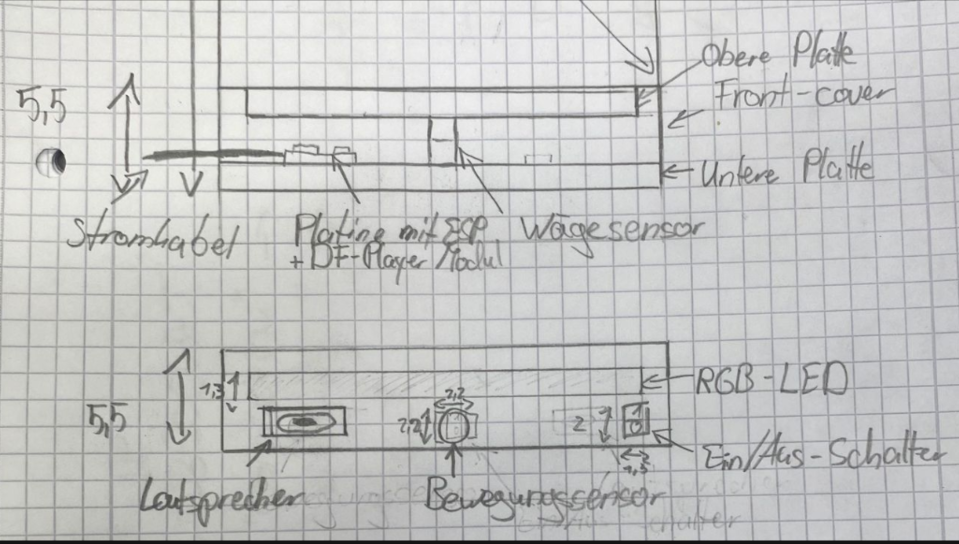 Obere Platte
5,5
Front-cover
Untere Platte
Stromkabel
Platine mit ESP
+ DF-Player Modul
Wägesensor
RGB-LED
1,3
2,2
5,5
2,2
2
Ein/Aus-Schalter
1,3
Lautsprecher
Bewegungssensor